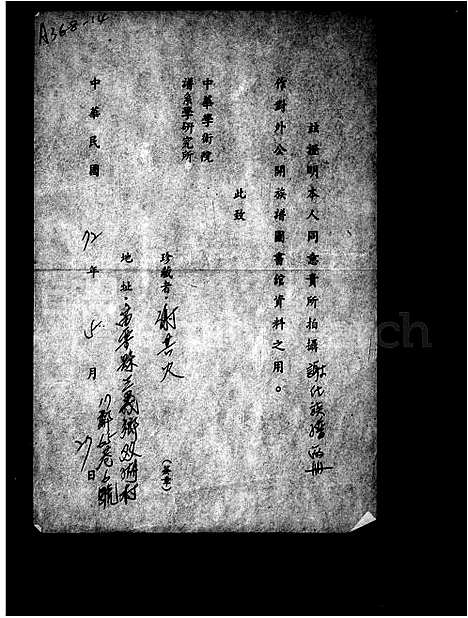 A368-14
茲證明本人同意貴所拍攝謝氏族譜 冊
作對外公開族譜圖書館資料之用。
此致
中華學術院
譜系學研究所
珍藏者:謝 火 (簽章)
地址: 縣三義鄉双湖村
中華民國 72 年 5 月 27 日